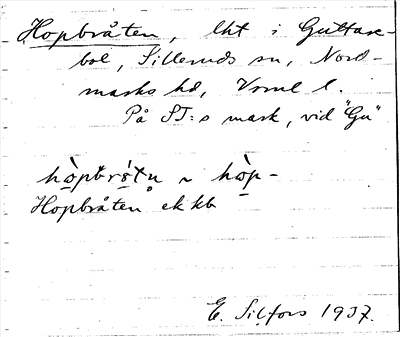 Hopbråten, lht i Guttane-
bol, Silleruds sn, Nord-
marks hd, Vrml l.
På ST:s mark, vid "Gu"
hòpbrɷ́tn ~ hòp-
Hopbråten ekkb
E. Silfors 1937.